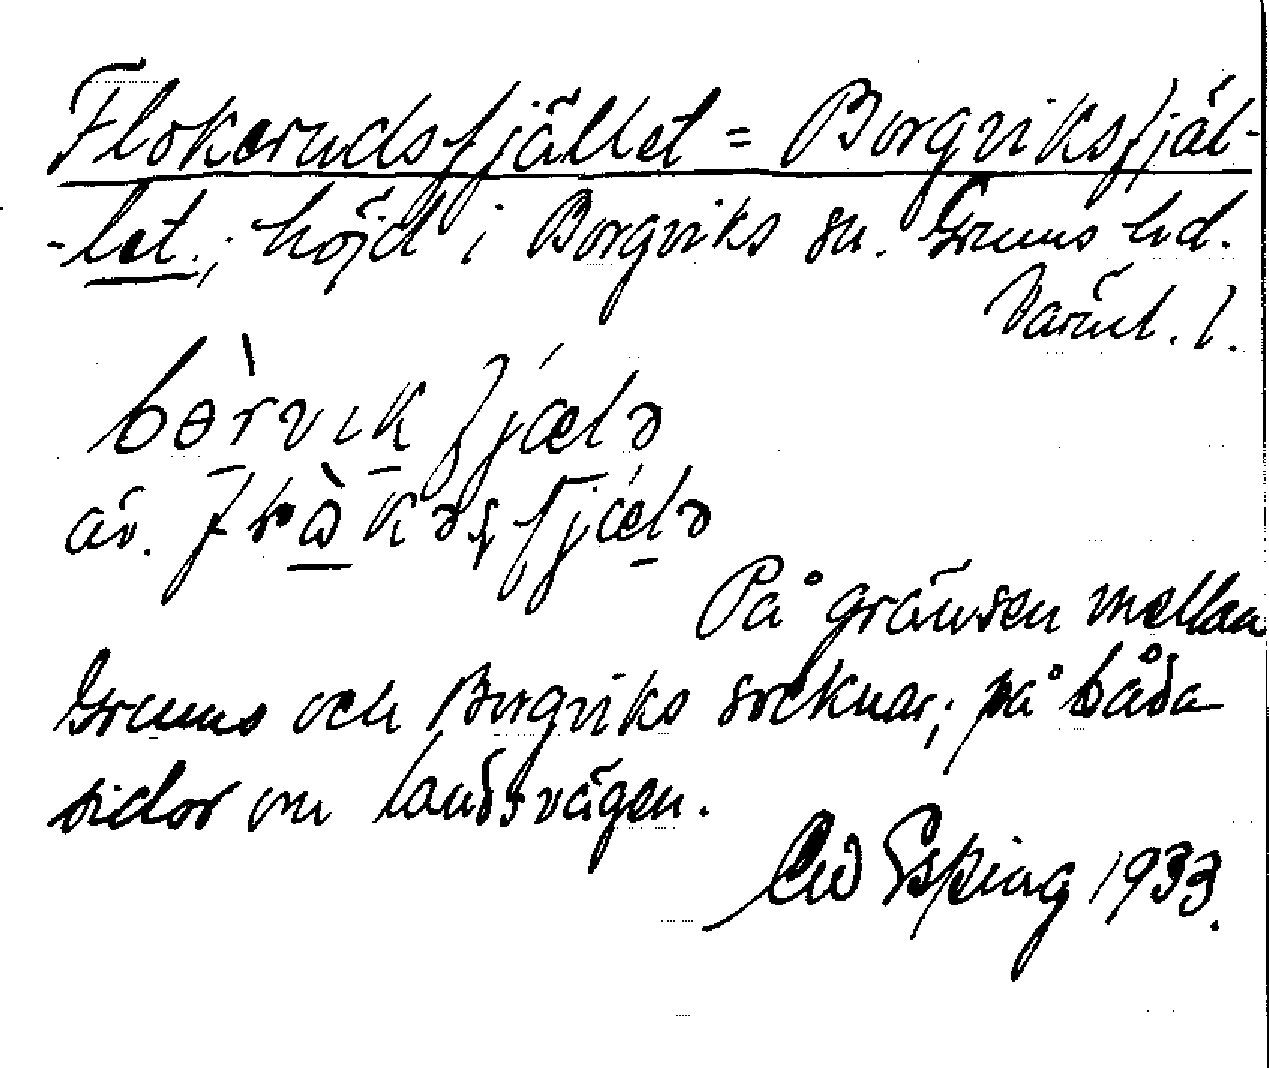 Flokerudsfjället = Borgviksfjäl-
-let.; höjd i Borgviks sn. Grums hd.
Värml. l.
På gränsen mellan
Grums och Borgviks socknar; på båda
sidor om landsvägen.
Esping 1933.